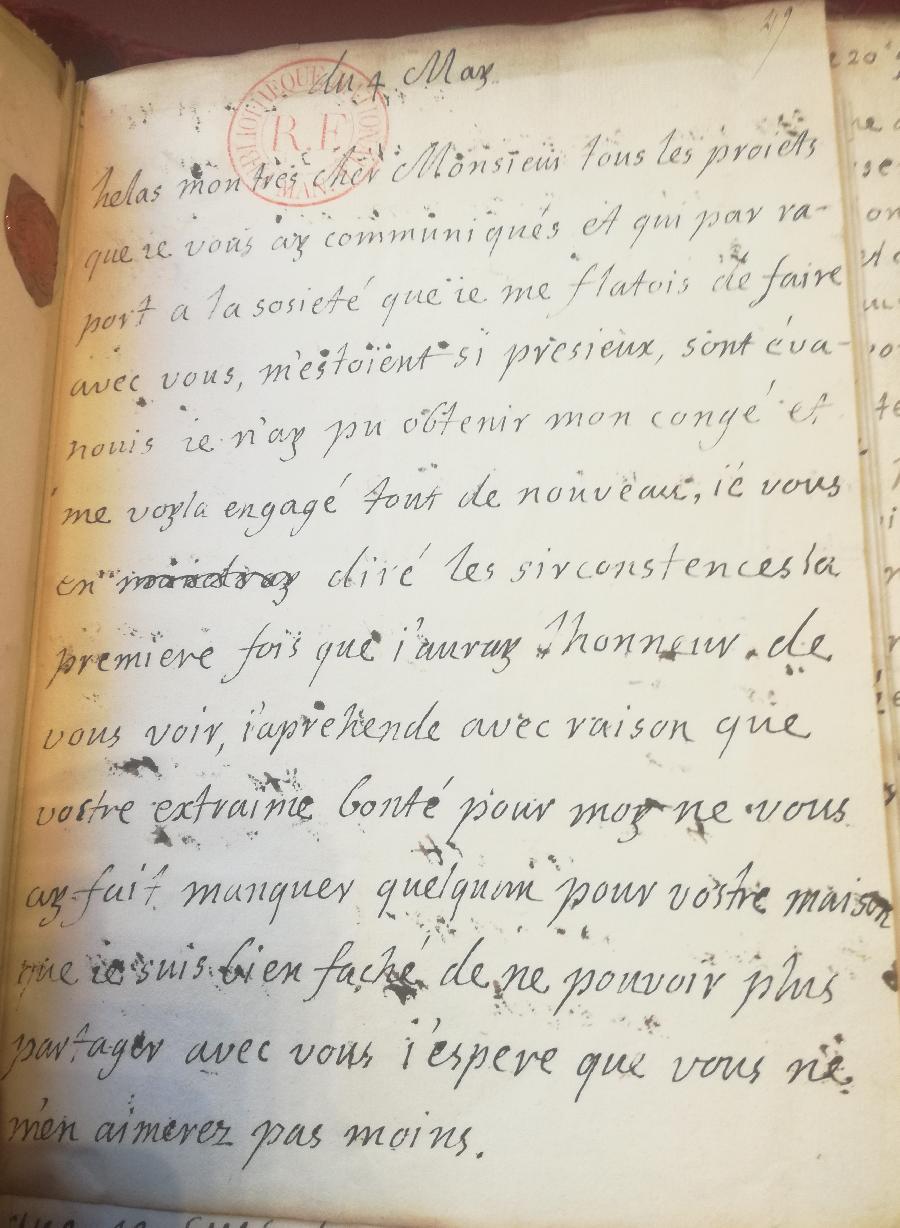 49
du 4 May
helas mon tres cher Monsieur tous les proiets
que ie vous ay communiqués et qui par ra-
port a la sosieté que ie me flatois de faire
avec vous, m'estoient si presieux, sont éva-
nouis ie n'ay pu obtenir mon congé et
me voyla engagé tout de nouveau, ie vous
en diré les sirconstences la
premiere fois que i'auray lhonneur de
vous voir, i'aprehende avec raison que
vostre extraime bonté pour moy ne vous
ay fait manquer quelquun pour vostre maison
que ie suis bien faché de ne pouvoir plus
partager avec vous i'espere que vous ne
m'en aimerez pas moins.
BIBLIOTHEQUE NATIONALE
R.F
MAN